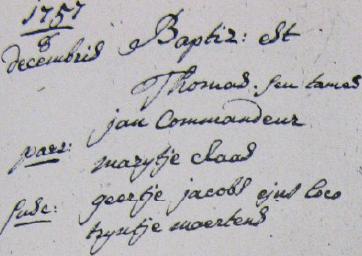 1757
8
decembris Baptiz: est
Thomas. seu tames
jan Commandeur
paer: marytje claas
susc: geertje jacobs ejus loco
tryntje maertens